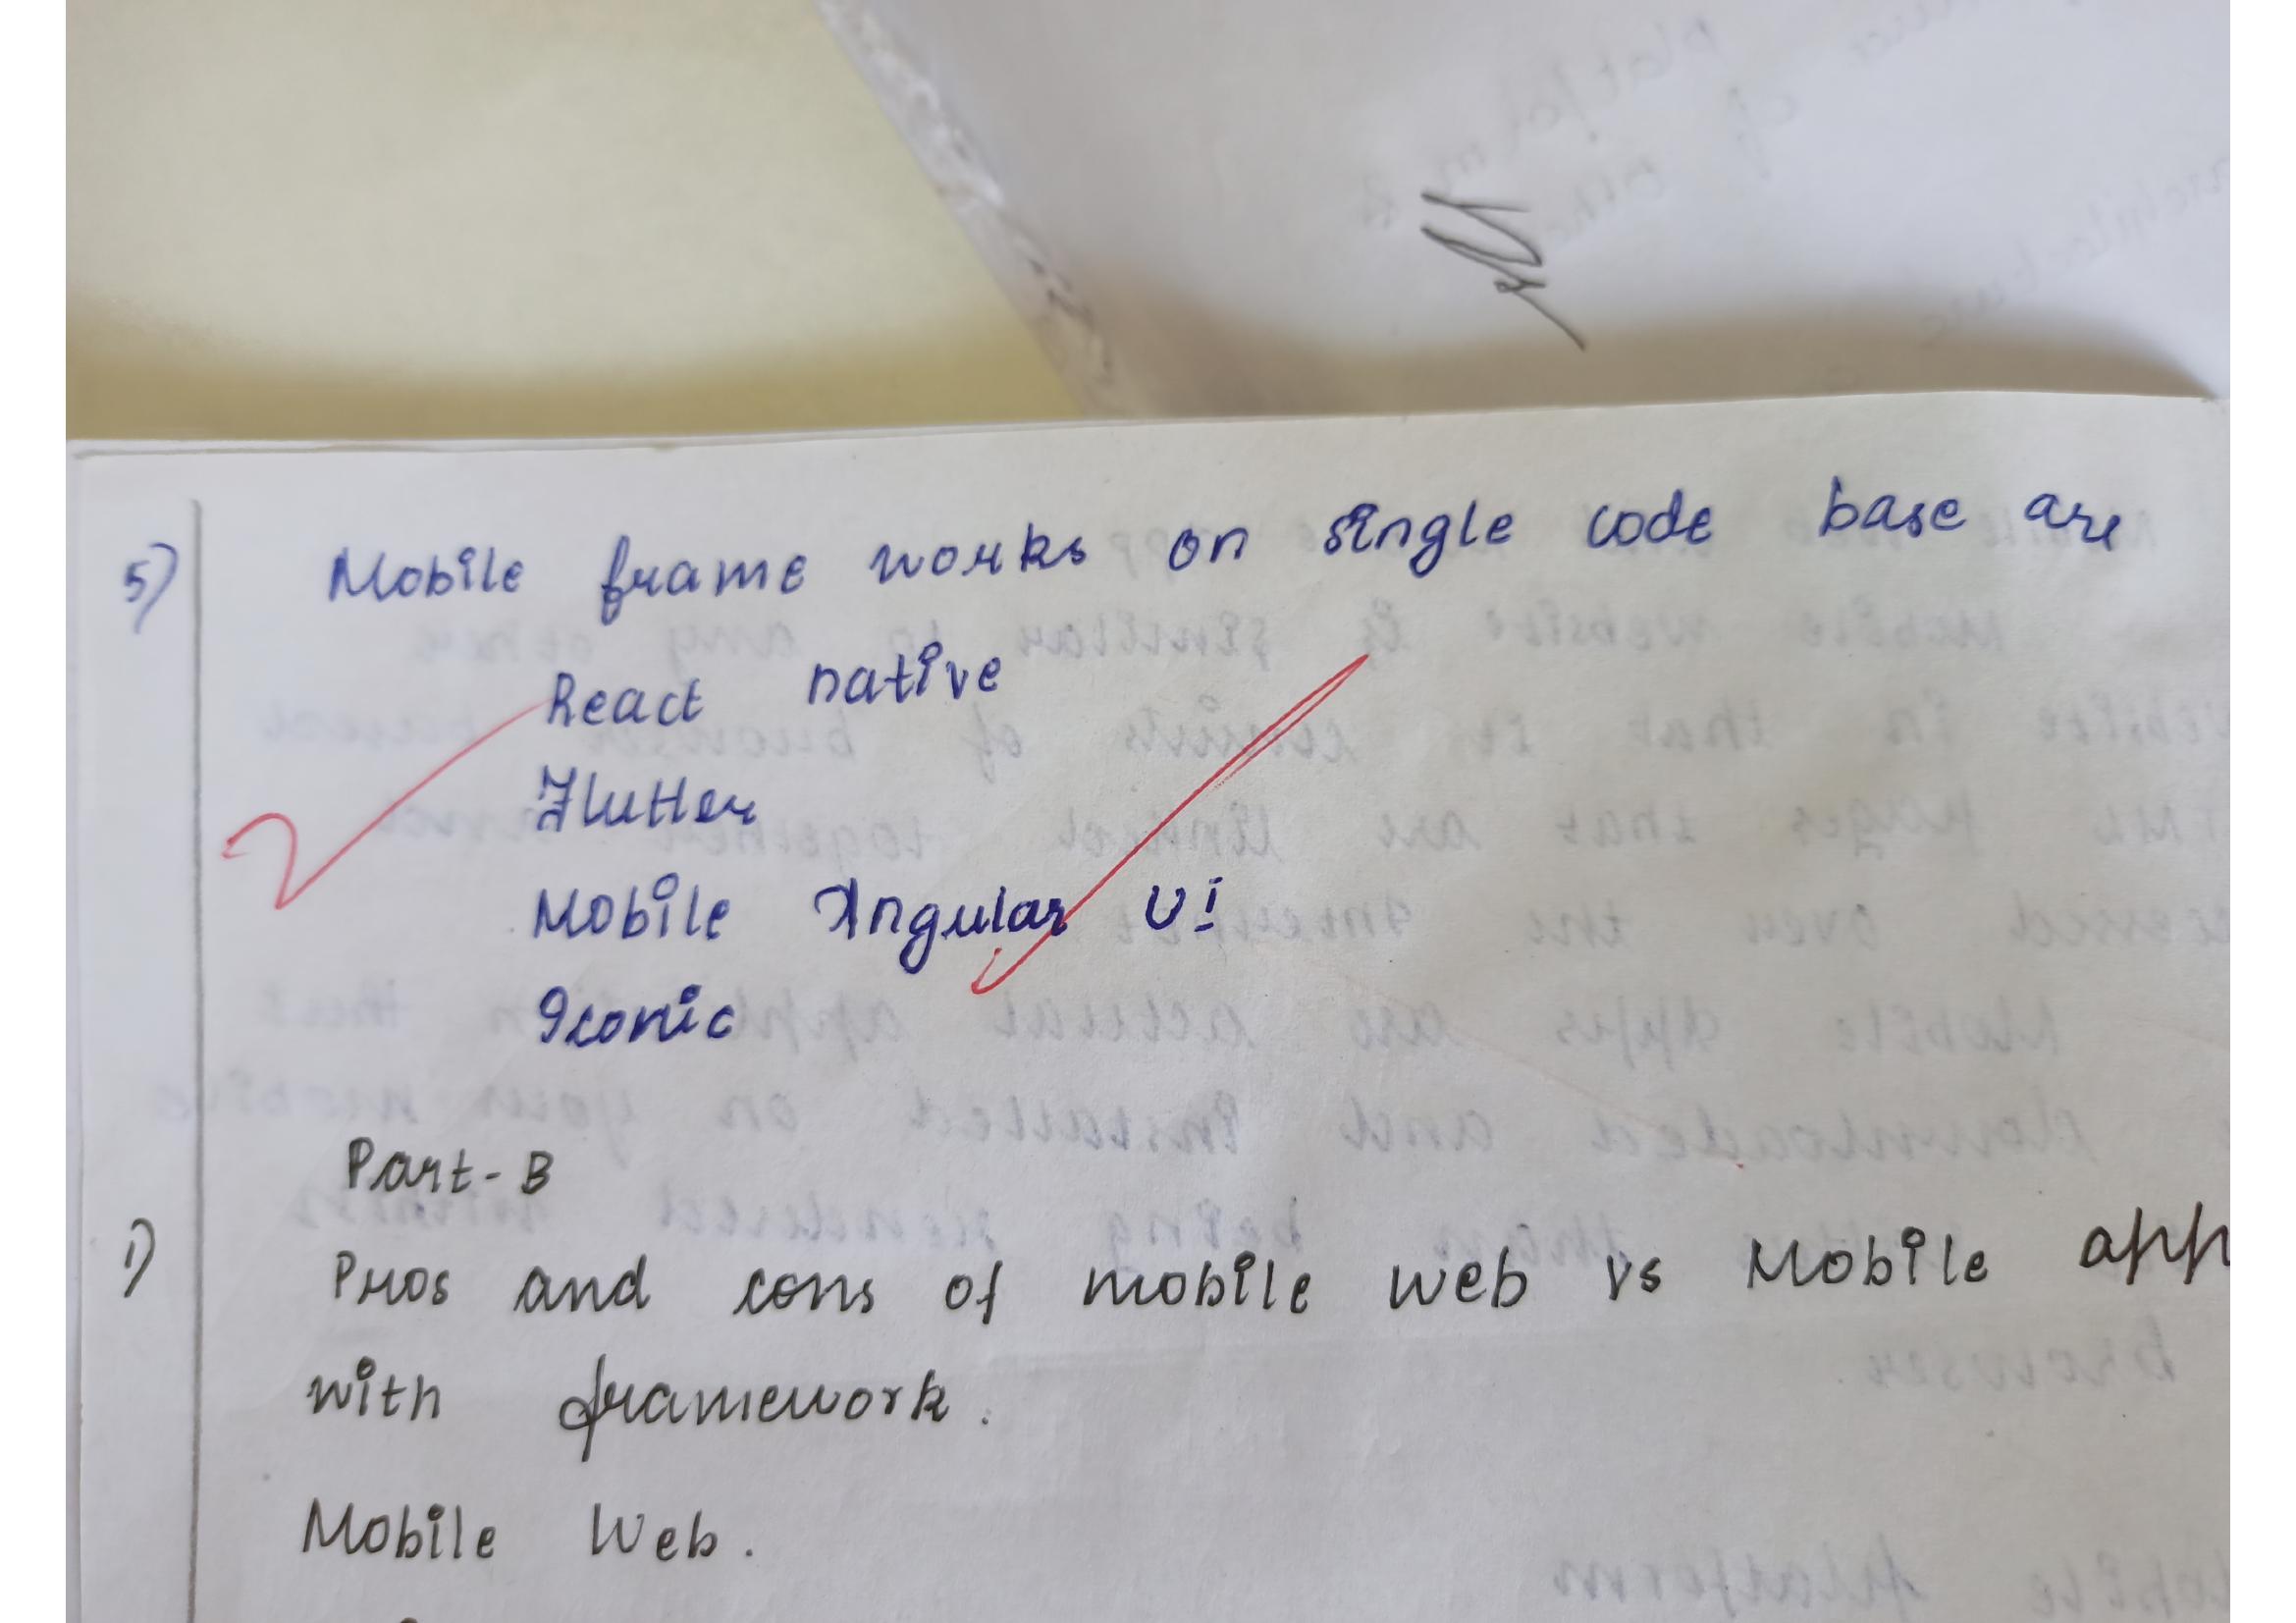 5) Mobile frame works on single code base are
React native
Flutter
Mobile Angular Ui
Iconic
Part-B
1) Pros and cons of mobile web vs Mobile app
with framework.
Mobile Web.